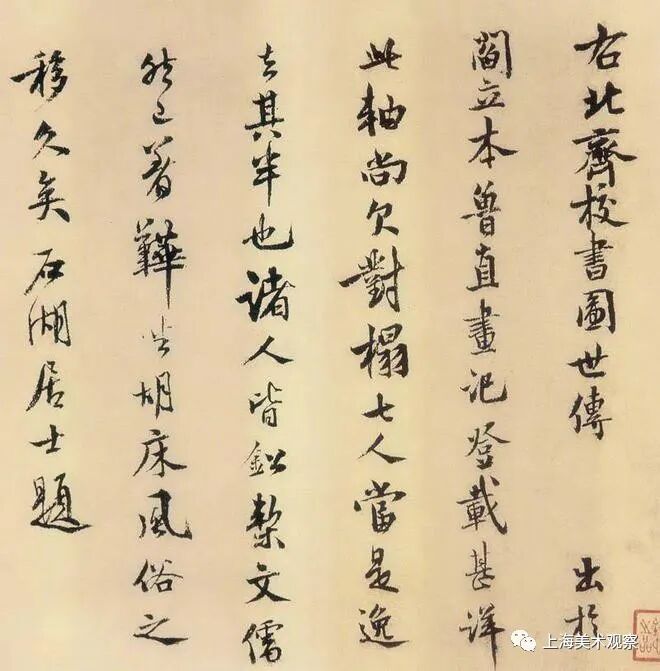 右北齊校書圖世傳出於
閻立本魯直畫記登載甚詳
此軸尚欠對榻七人當是逸
去其半也諸人皆鉛槧文儒
然已著鞾坐胡床風俗之
移久矣石湖居士題
上海美术观察